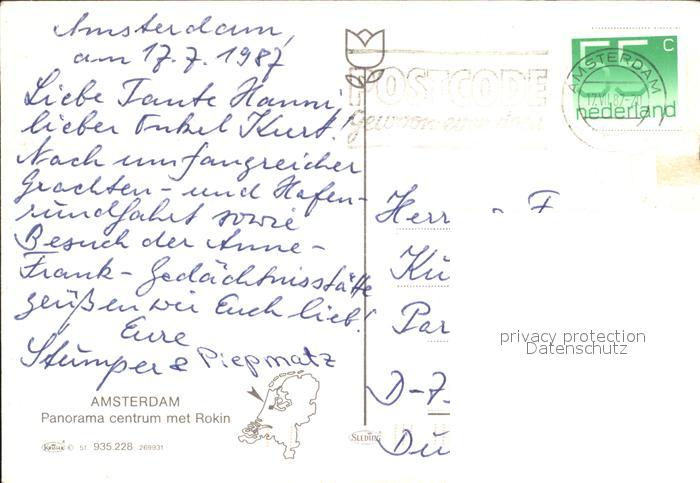 Amsterdam,
am 17.7.1987
Liebe Tante Hanni,
lieber Onkel Kurt!
Nach umfangreicher
Grachten- und Hafen-
rundfahrt sowie
Besuch der Anne-
Frank-Gedächtnisstätte
grüßen wir Euch lieb!
Eure
Stumper & Piepmatz
AMSTERDAM
Panorama centrum met Rokin
KRÜGER © 51 935.228 269931
POSTCODE
gewoon even doen
AMSTERDAM
55 C
nederland
Herr
Kü
Par
D-7
Dü
privacy protection
Datenschutz